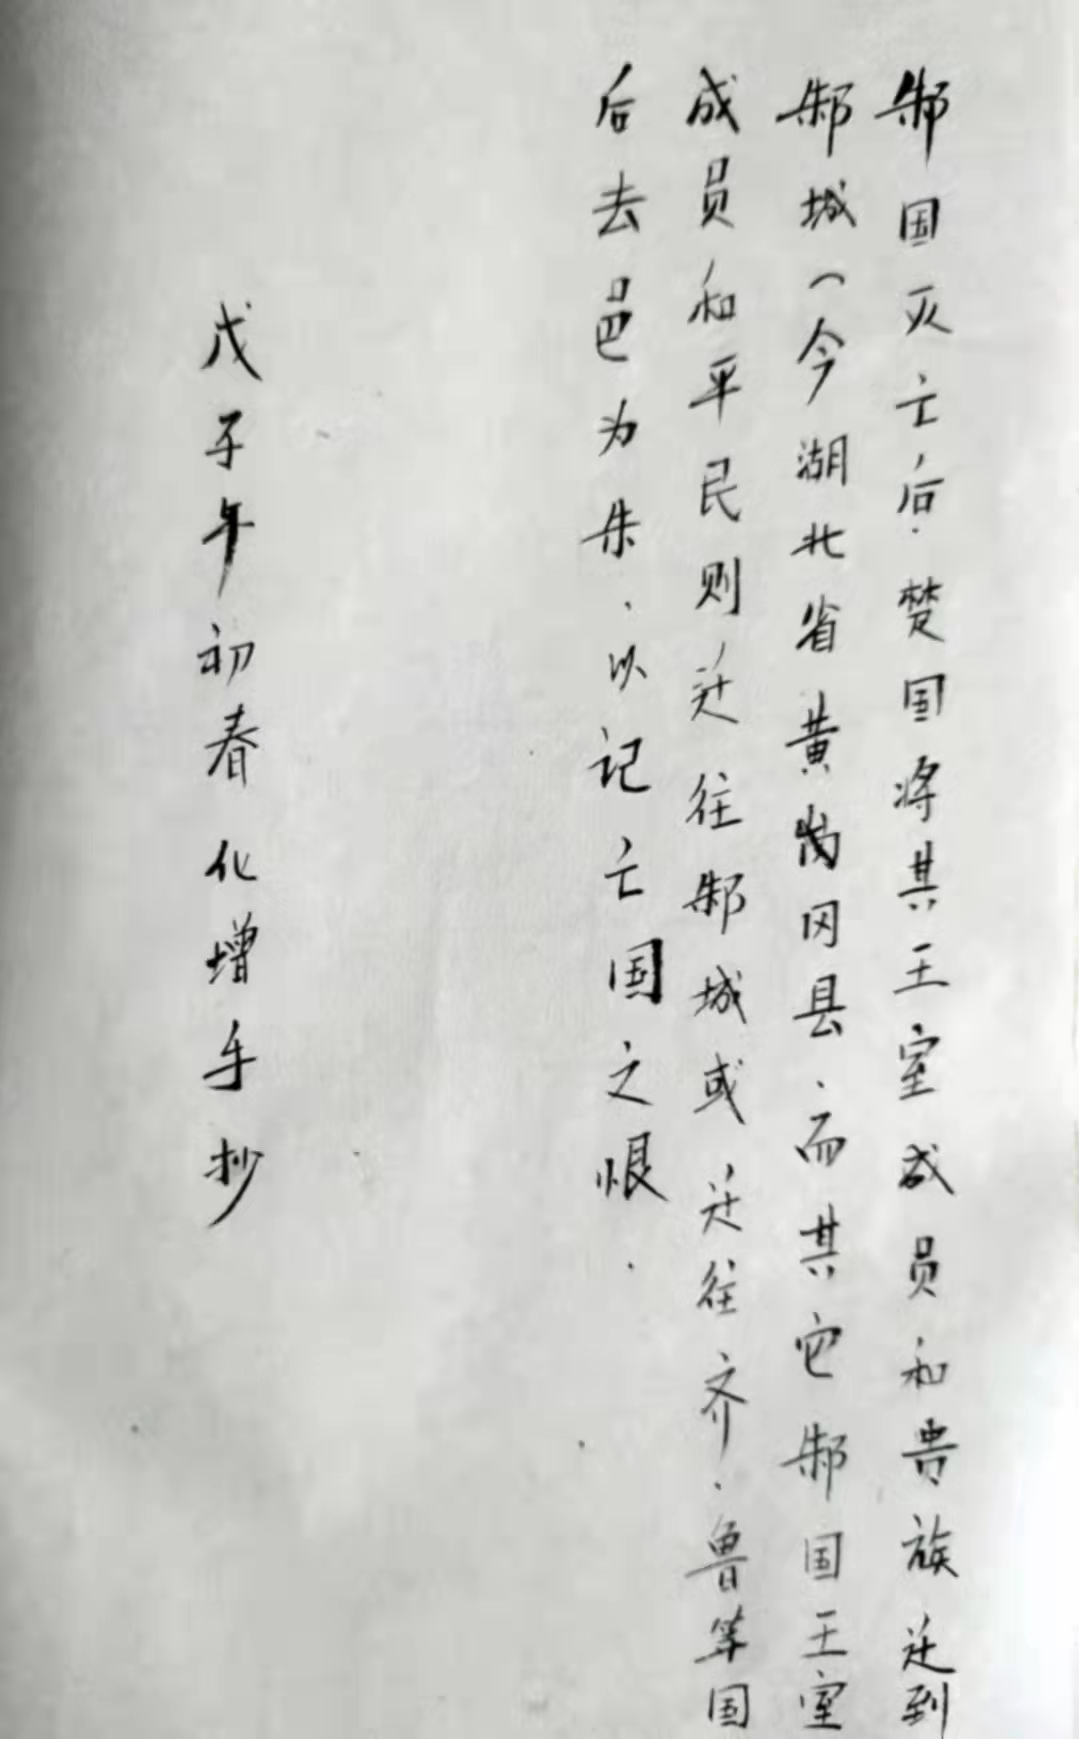 邾国灭亡后.楚国将其王室成员和贵族迁到
邾城(今湖北省黄冈县.而其它邾国王室
成员和平民则迁往邾城或迁往齐.鲁等国
后去邑为朱.以记亡国之恨.
戊子年初春化增手抄